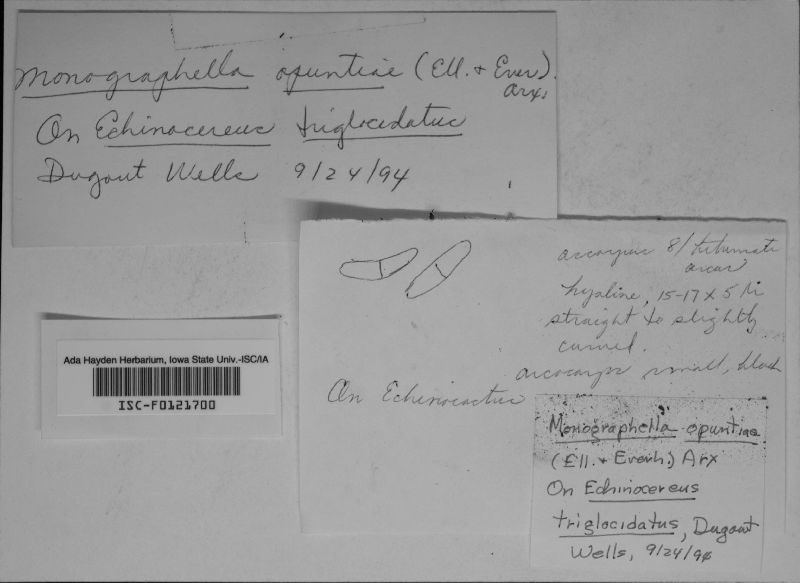 Monographella opuntiae (Ell. + Ever).
Arx.
On Echinocereus triglocidatus
Dugout Wells 9/24/94
ascospores 8/
ascus
hyaline, 15-17 x 5 µ
straight to slightly
curved.
ascocarps small, black
On Echinocactus
Ada Hayden Herbarium, Iowa State Univ.-ISC/IA
ISC-F0121700
Monographella opuntiae
(Ell. + Everh.) Arx
On Echinocereus
triglocidatus, Dugout
Wells, 9/24/94